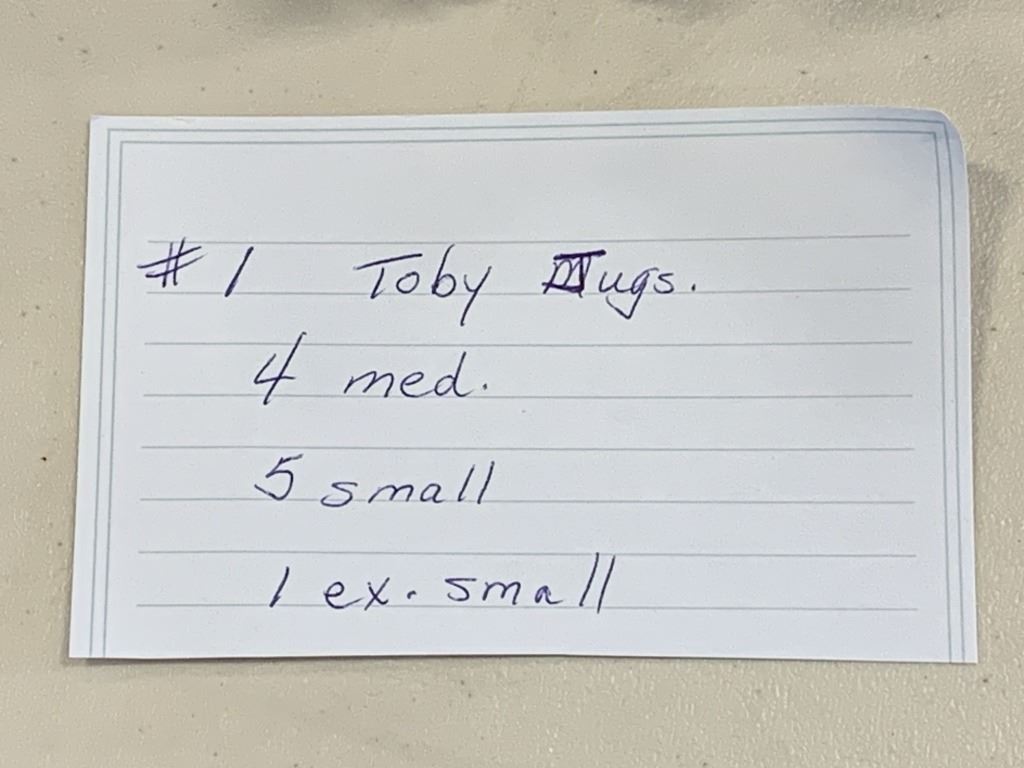 # 1 Toby Mugs.
4 med.
5 small
1 ex. small